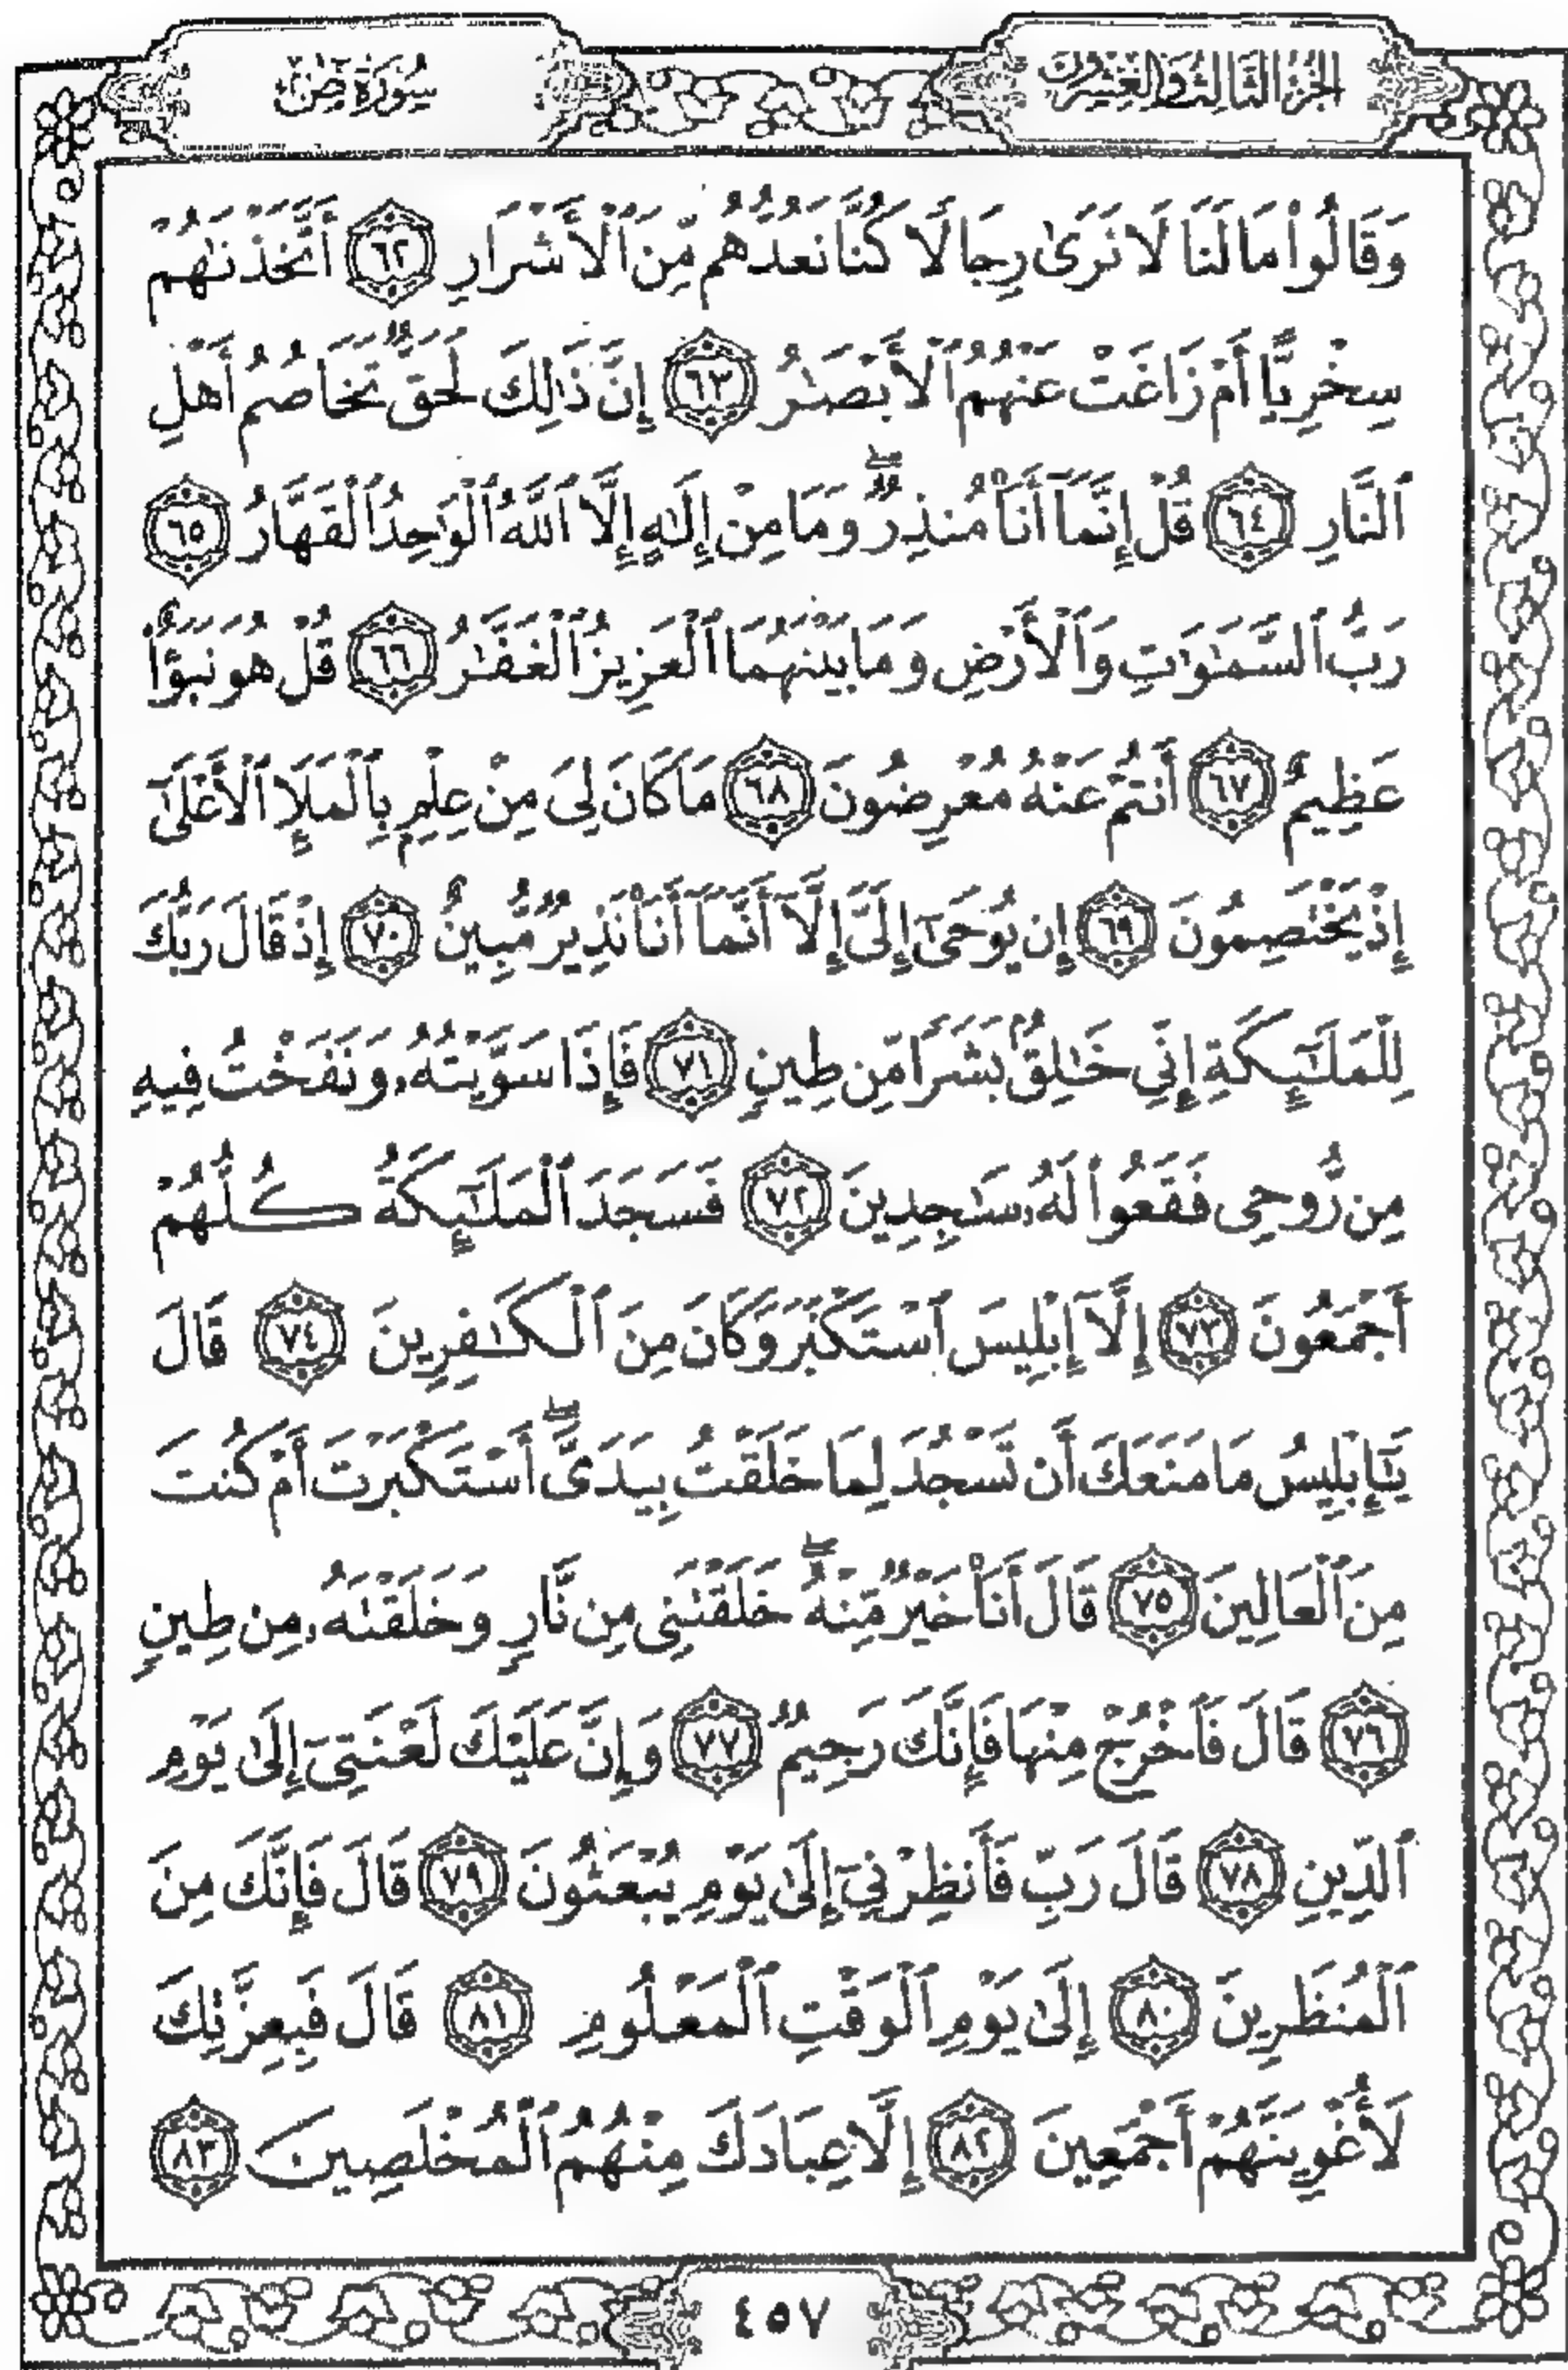 الجزء الثالث والعشرون
سورة ص
وَقَالُوا۟ مَا لَنَا لَا نَرَىٰ رِجَالًا كُنَّا نَعُدُّهُم مِّنَ ٱلْأَشْرَارِ ٦٢ أَتَّخَذْنَٰهُمْ
سِخْرِيًّا أَمْ زَاغَتْ عَنْهُمُ ٱلْأَبْصَٰرُ ٦٣ إِنَّ ذَٰلِكَ لَحَقٌّ تَخَاصُمُ أَهْلِ
ٱلنَّارِ ٦٤ قُلْ إِنَّمَآ أَنَا۠ مُنذِرٌ ۖ وَمَا مِنْ إِلَٰهٍ إِلَّا ٱللَّهُ ٱلْوَٰحِدُ ٱلْقَهَّارُ ٦٥
رَبُّ ٱلسَّمَٰوَٰتِ وَٱلْأَرْضِ وَمَا بَيْنَهُمَا ٱلْعَزِيزُ ٱلْغَفَّٰرُ ٦٦ قُلْ هُوَ نَبَؤٌا۟
عَظِيمٌ ٦٧ أَنتُمْ عَنْهُ مُعْرِضُونَ ٦٨ مَا كَانَ لِىَ مِنْ عِلْمٍۭ بِٱلْمَلَإِ ٱلْأَعْلَىٰٓ
إِذْ يَخْتَصِمُونَ ٦٩ إِن يُوحَىٰٓ إِلَىَّ إِلَّآ أَنَّمَآ أَنَا۠ نَذِيرٌ مُّبِينٌ ٧٠ إِذْ قَالَ رَبُّكَ
لِلْمَلَٰٓئِكَةِ إِنِّى خَٰلِقٌۢ بَشَرًا مِّن طِينٍ ٧١ فَإِذَا سَوَّيْتُهُۥ وَنَفَخْتُ فِيهِ
مِن رُّوحِى فَقَعُوا۟ لَهُۥ سَٰجِدِينَ ٧٢ فَسَجَدَ ٱلْمَلَٰٓئِكَةُ كُلُّهُمْ
أَجْمَعُونَ ٧٣ إِلَّآ إِبْلِيسَ ٱسْتَكْبَرَ وَكَانَ مِنَ ٱلْكَٰفِرِينَ ٧٤ قَالَ
يَٰٓإِبْلِيسُ مَا مَنَعَكَ أَن تَسْجُدَ لِمَا خَلَقْتُ بِيَدَىَّ ۖ أَسْتَكْبَرْتَ أَمْ كُنتَ
مِنَ ٱلْعَالِينَ ٧٥ قَالَ أَنَا۠ خَيْرٌ مِّنْهُ ۖ خَلَقْتَنِى مِن نَّارٍ وَخَلَقْتَهُۥ مِن طِينٍ
٧٦ قَالَ فَٱخْرُجْ مِنْهَا فَإِنَّكَ رَجِيمٌ ٧٧ وَإِنَّ عَلَيْكَ لَعْنَتِىٓ إِلَىٰ يَوْمِ
ٱلدِّينِ ٧٨ قَالَ رَبِّ فَأَنظِرْنِىٓ إِلَىٰ يَوْمِ يُبْعَثُونَ ٧٩ قَالَ فَإِنَّكَ مِنَ
ٱلْمُنظَرِينَ ٨٠ إِلَىٰ يَوْمِ ٱلْوَقْتِ ٱلْمَعْلُومِ ٨١ قَالَ فَبِعِزَّتِكَ
لَأُغْوِيَنَّهُمْ أَجْمَعِينَ ٨٢ إِلَّا عِبَادَكَ مِنْهُمُ ٱلْمُخْلَصِينَ ٨٣
٤٥٧